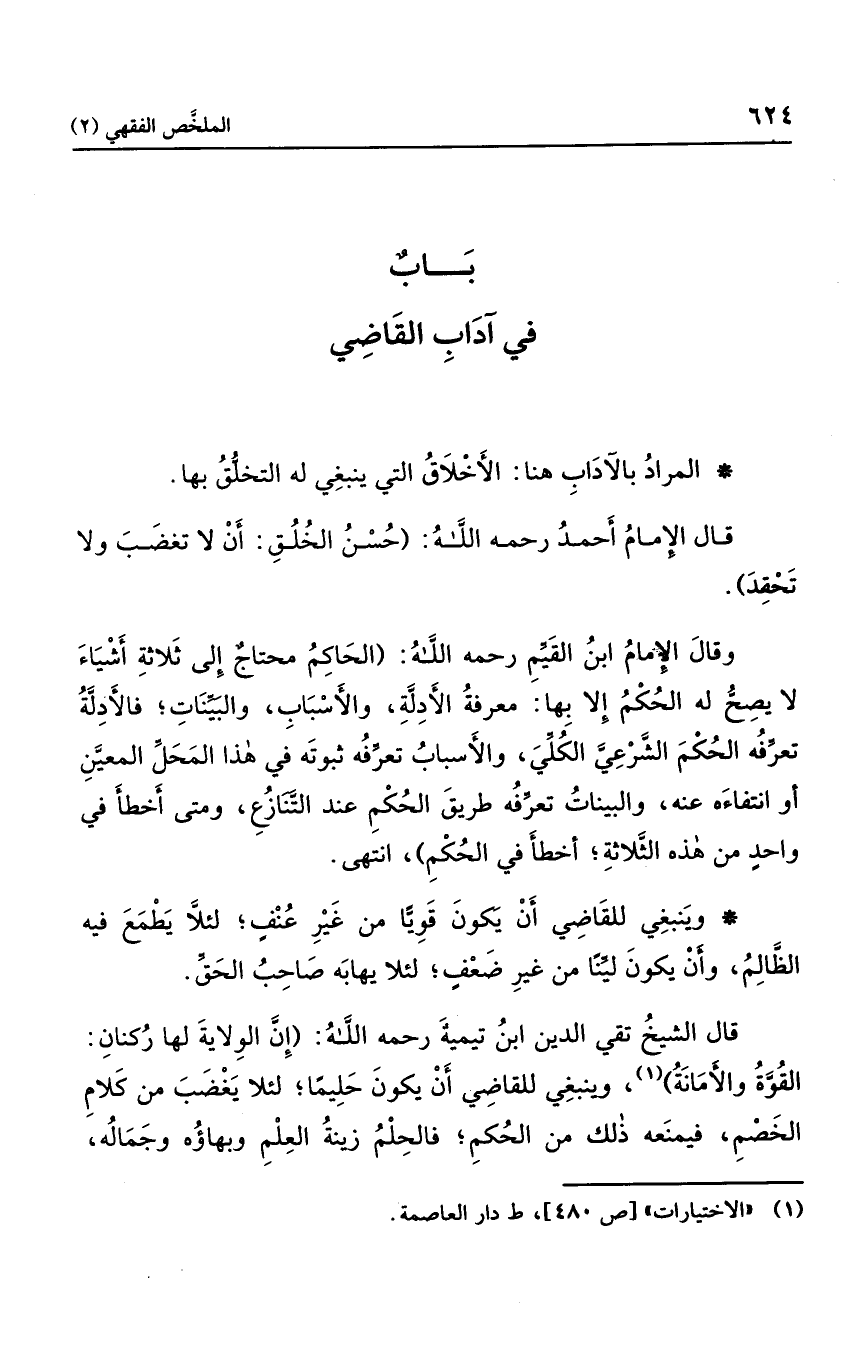 ٦٢٤
الملخَّص الفقهي (٢)
بَـــابٌ
في آدَابِ القَاضِي
* المرادُ بالآدَابِ هنا: الأَخْلَاقُ التي ينبغِي له التخلُّقُ بها.
قـال الإمـامُ أحمـدُ رحمـه اللَّـهُ: (حُسْـنُ الخُلُـقِ: أَنْ لا تغضَـبَ ولا
تَحْقِدَ).
وقالَ الإمامُ ابنُ القَيِّمِ رحمه اللَّـهُ: (الحَاكِمُ محتاجٌ إلى ثَلَاثةِ أَشْيَاءَ
لا يصِحُّ له الحُكْمُ إلا بِها: معرفةُ الأَدِلَّةِ، والأَسْبَابِ، والبَيِّنَاتِ؛ فالأَدِلَّةُ
تعرِّفُه الحُكْمَ الشَّرْعِيَّ الكُلِّيَ، والأسبابُ تعرِّفُه ثبوتَه في هٰذا المَحَلِّ المعيَّنِ
أو انتفاءَه عنه، والبيناتُ تعرِّفُه طريقَ الحُكْمِ عند التَّنَازُعِ، ومتى أَخطأَ في
واحدٍ من هٰذه الثَّلاثةِ؛ أخطأَ في الحُكْمِ)، انتهى.
* ويَنبغِي للقَاضِي أَنْ يَكونَ قَوِيًّا من غَيْرِ عُنْفٍ؛ لئلَّا يَطْمَعَ فيه
الظَّالِمُ، وأَنْ يكونَ ليِّنًا من غيرِ ضَعْفٍ؛ لئلا يهابَه صَاحِبُ الحَقِّ.
قال الشيخُ تقي الدين ابنُ تيميةَ رحمه اللَّـهُ: (إنَّ الوِلايةَ لها رُكنانِ:
القُوَّةُ والأَمَانَةُ)(١)، وينبغِي للقاضِي أَنْ يكونَ حَلِيمًا؛ لئلا يَغْضَبَ من كَلامِ
الخَصْمِ، فيمنَعه ذٰلك من الحُكمِ؛ فالحِلْمُ زينةُ العِلْمِ وبهاؤُه وجَمَالُه،
(١) «الاختيارات» [ص ٤٨٠]، ط دار العاصمة.